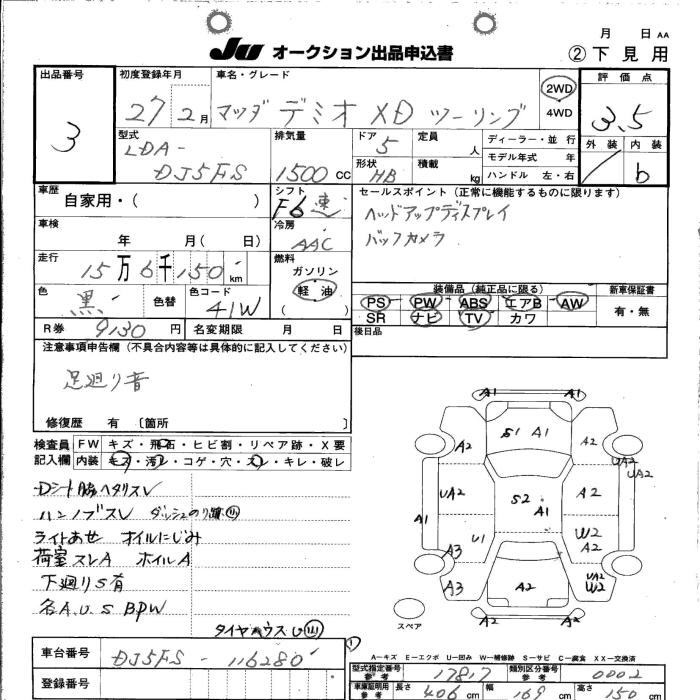 月 日 AA
JU オークション出品申込書 ②下見用
出品番号 初度登録年月 車名・グレード 2WD 4WD 評価点
3 27 2月 マツダ デミオ XD ツーリング 3.5
型式 排気量 ドア 定員 ディーラー・並行 外装 内装
LDA- DJ5FS 1500 CC 5 人 モデル年式 年 b
形状 HB 積載 kg ハンドル 左・右
車歴 自家用・( ) シフト F6速 セールスポイント(正常に機能するものに限ります)
ヘッドアップディスプレイ
バックカメラ
車検 年 月( 日) 冷房 AAC
走行 15万6千150km 燃料 ガソリン 軽油 ( )
色 黒 色替 色コード 41W
装備品(純正品に限る) 新車保証書
PS PW ABS エアB AW 有・無
SR ナビ TV カワ
R券 9130円 名変期限 月 日 後日品
注意事項申告欄(不具合内容等は具体的に記入してください)
足廻り音
修復歴 有 〔箇所 〕
検査員 FW キズ・飛石・ヒビ割・リペア跡・X要
記入欄 内装 キズ・汚レ・コゲ・穴・スレ・キレ・破レ
Dシート脇ヘタリスレ
ハンノブスレ ダッシュのり跡
ライトあせ オイルにじみ
荷室スレA ホイルA
下廻りS有
各A.U.S BPW
タイヤハウスU
A1 A1
S1 A1
A2 A2
UA2 UA2
UA2 S2 A1 A2
A1
U1 W2 A2
A3
A3 A2 UA2 W2
A2 A2
スペア
A-キズ E-エクボ U-凹み W-補修跡 S-サビ C-腐食 XX-交換済
車台番号 DJ5FS - 116280
登録番号
型式指定番号 参考 17817 類別区分番号 参考 0002
車庫証明用 参考 長さ 406 cm 幅 169 cm 高さ 150 cm